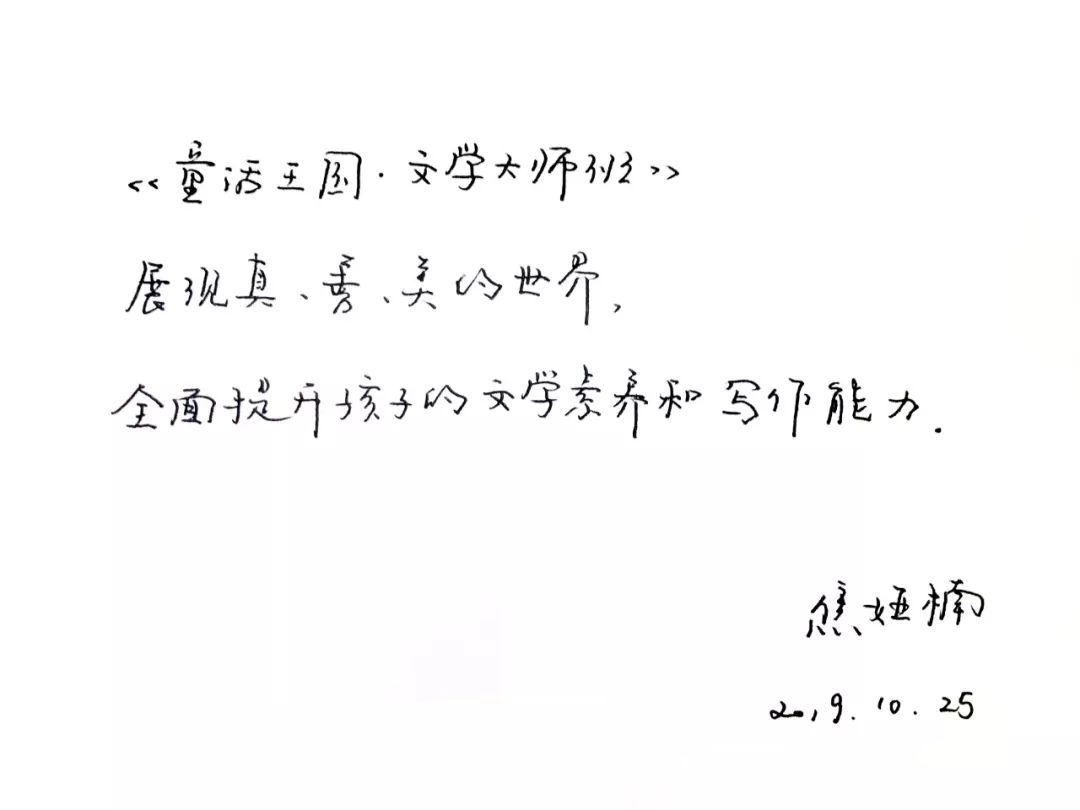 《童话王国·文学大师班》
展现真、善、美的世界，
全面提升孩子的文学素养和写作能力.
焦娅楠
2019.10.25